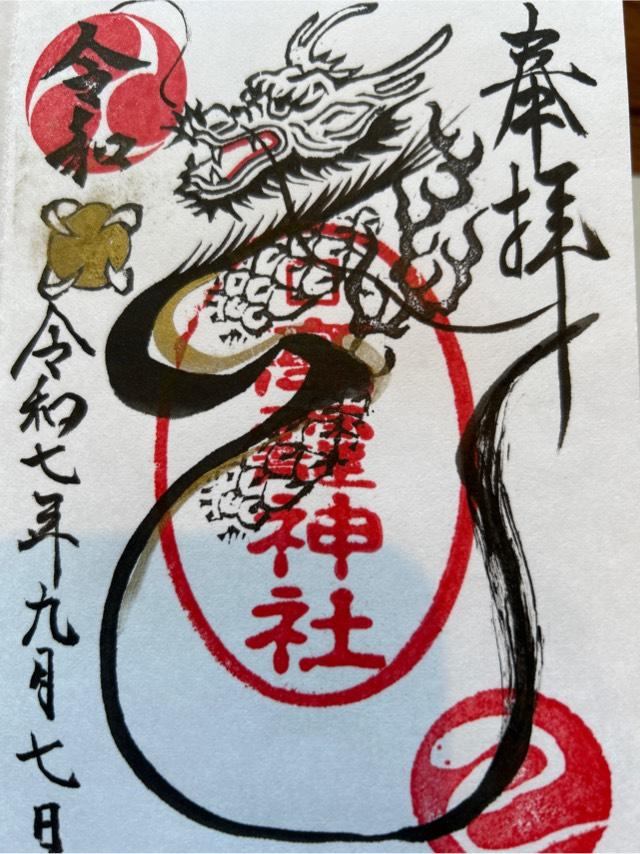 奉拝
神社
令和
令和七年九月七日